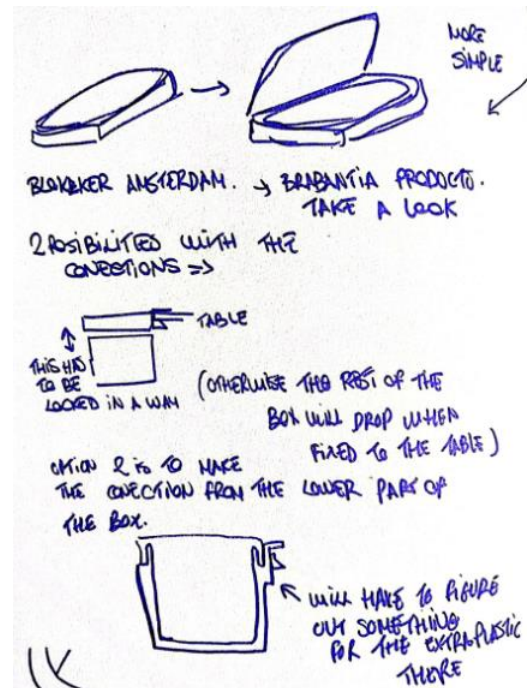 MORE
SIMPLE
BLOKAKER AMSTERDAM. → BRABANTIA PRODUCTO.
TAKE A LOOK
2 POSIBILITIED WITH THE
CONECTIONS =>
TABLE
THIS HAD
TO BE
LOCKED IN A WAY
(OTHERWISE THE REST OF THE
BOX WILL DROP WHEN
FIXED TO THE TABLE)
OPTION 2 IS TO MAKE
THE CONECTION FROM THE LOWER PART OF
THE BOX.
WILL HAVE TO FIGURE
OUT SOMETHING
FOR THE EXTRA PLASTIC
THERE